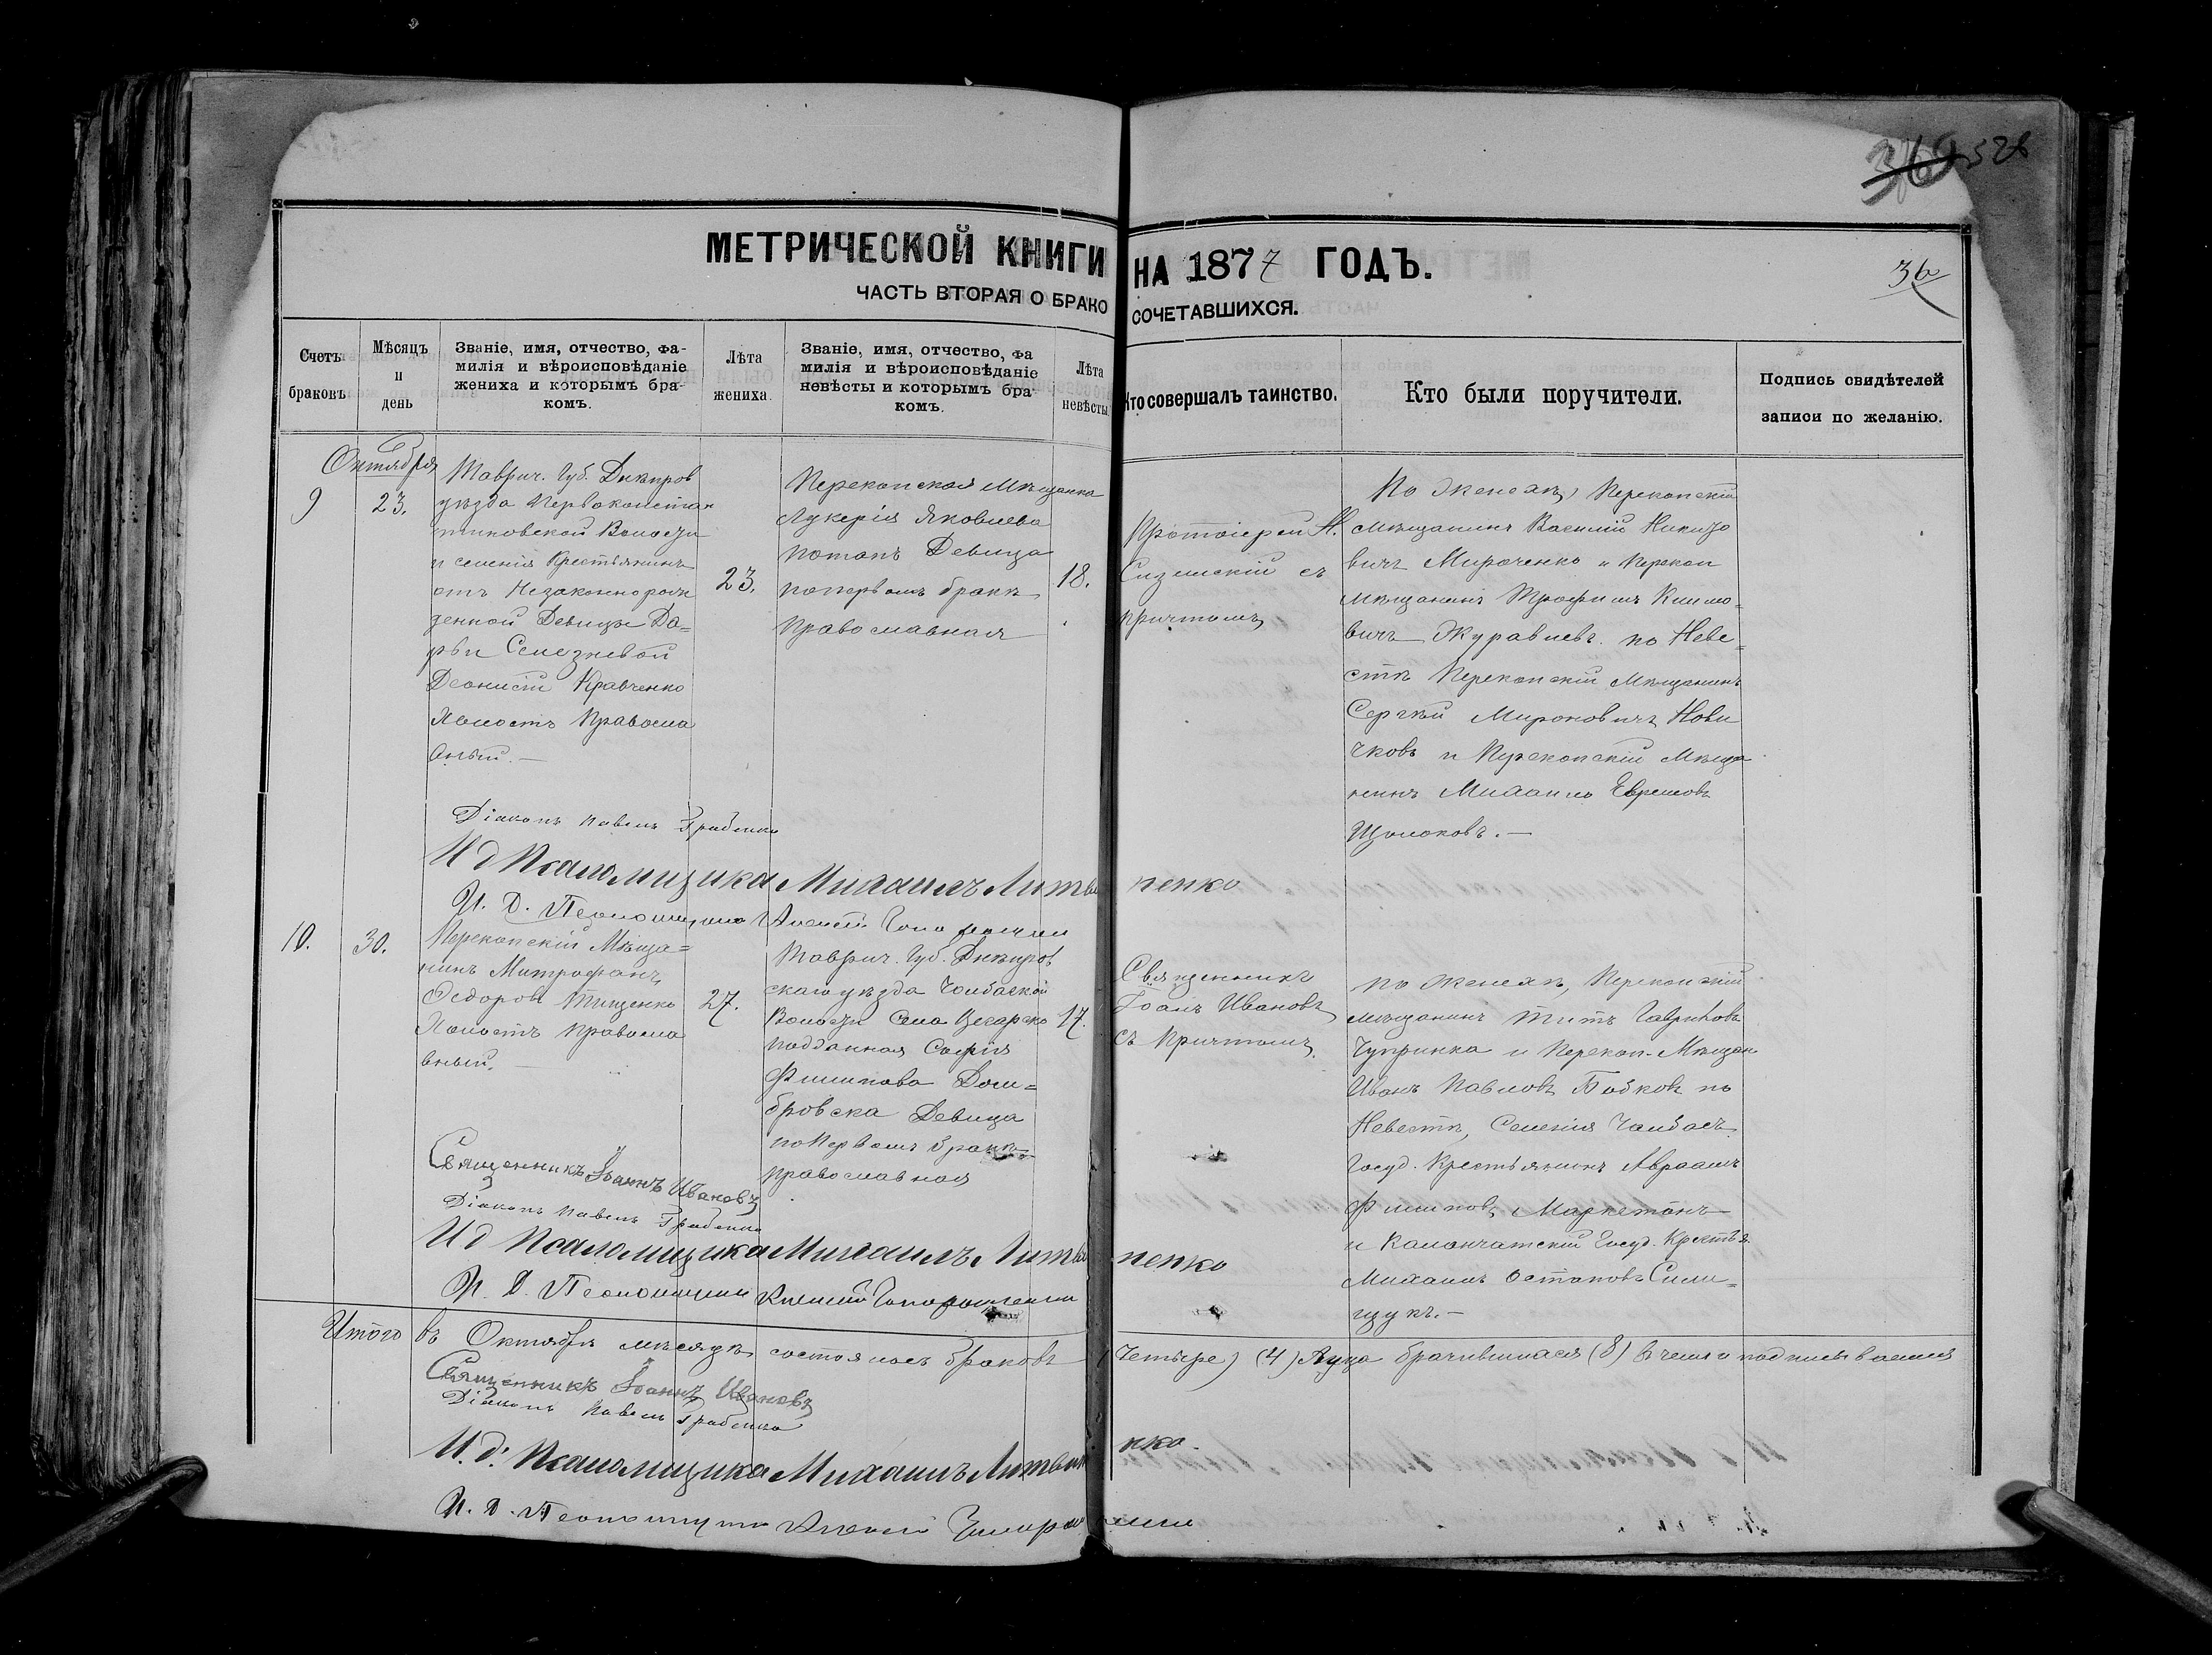 369 528
МЕТРИЧЕСКОЙ КНИГИ НА 1877 ГОДЪ.
36
ЧАСТЬ ВТОРАЯ О БРАКОСОЧЕТАВШИХСЯ.
Счетъ браковъ
Мѣсяцъ и день
Званіе, имя, отчество, фа-
милія и вѣроисповѣданіе
жениха и которымъ бра-
комъ.
Лѣта жениха.
Званіе, имя, отчество, фа
милія и вѣроисповѣданіе
невѣсты и которымъ бра
комъ.
Лѣта невѣсты
Кто совершалъ таинство.
Кто были поручители.
Подпись свидѣтелей
записи по желанію.
Октября
9
23.
Таврич. Губ. Днѣпров
уѣзда Первоконстан
тиновской Волости
и селенія Крестьянинъ
отъ Незаконнорож
денной Девицы Да=
рьи Селезневой
Деонисій Кравченко
Холостъ Правосла
вный. —
23.
Перекопская Мѣщанка
Лукерія Яковлева
Потапъ Девица
по первомъ бракѣ
православная
18.
Протоіерей Н.
съ
причтомъ
По Женихѣ, Перекопскій
мѣщанинъ Василий Никифо
вичъ Мироченко и Перекоп
мѣщанинъ Трофимъ Климо=
вичъ Журавлевъ. по Неве=
стѣ Перекопскій Мѣщанинъ
Сергѣй Мироновичъ Нови
чковъ и Перекопскій Мѣща
нинъ Михаило Ефремовъ
Щолоковъ. —
Діаконъ Павелъ Грабенко
И д Псаломщика Михаилъ Литвиненко
И. Д. Псаломщика Алексій
10.
30.
Перекопскій Мѣща=
нинъ Митрофанъ
Федоровъ Тищенко
Холостъ Правосла
вный. —
27.
Таврич. Губ. Днѣпров
скаго уѣзда Чолбаской
Волости Села Цесарско
подданная Софія
Филипова Дом=
бровска Девица
по Первомъ бракѣ
православная
17.
Священникъ
Іоанъ Ивановъ
съ Причтомъ
По Женихѣ, Перекопский
мѣщанинъ Титъ Гавриловъ
Чупринка и Перекоп. Мѣщан
Иванъ Павловъ Бобковъ по
Невестѣ, Селенія Чалбасъ
Госуд. Крестьянинъ Авраамъ
Филиповъ Маркетанъ
и Каланчатскій Госуд. Крестья
Михаилъ Остаповъ Сили=
щукъ. —
Священникъ Іоаннъ Ивановъ
Діаконъ Павелъ Грабенко
И д Псаломщика Михаилъ Литвиненко
И. Д. Псаломщика Алексій
Итого въ Октябрѣ мѣсяцѣ состоялось браковъ (Четыре) (4) Лица брачившихся (8) в чемъ и подписываемся
Священникъ Іоаннъ Ивановъ
Діаконъ Павелъ Грабенко
И. д. Псаломщика Михаилъ Литвиненко.
И. Д. Псаломщика Алексій